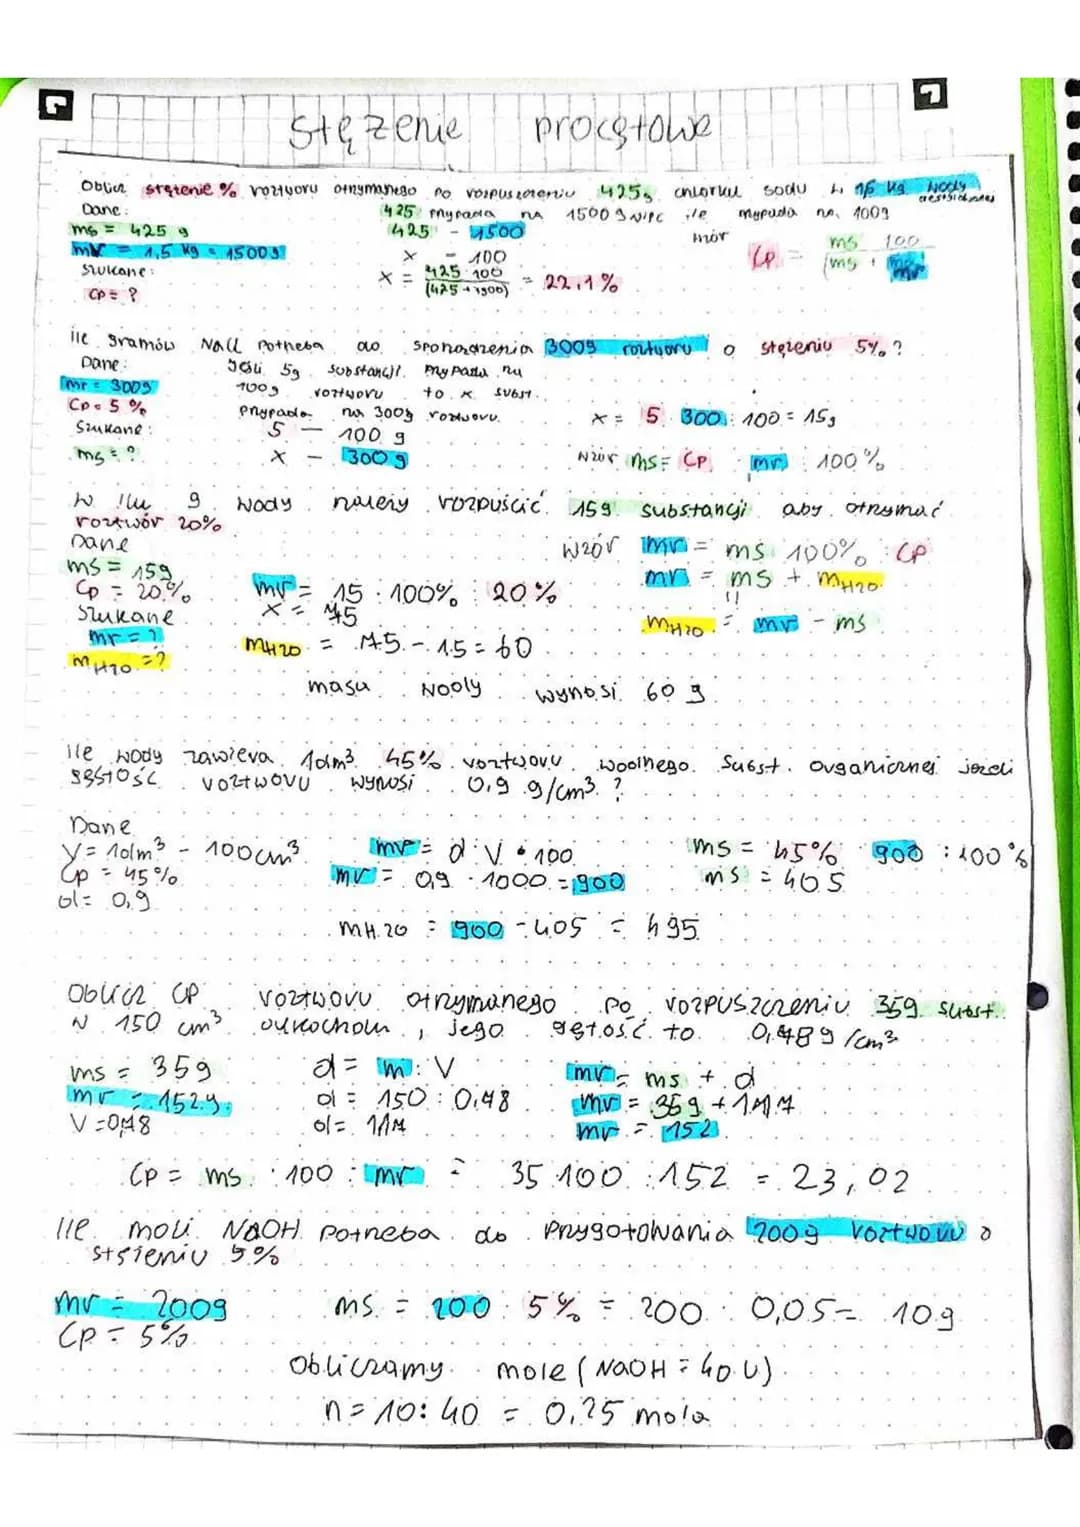 stężenie procętowe
Oblicz stężenie % roztworu otrzymanego po rozpuszczeniu 425g chlorku sodu w 1,5 kg wody
Dane: 425 mypada na 1500 g więc ile mypada na 100g
ms = 425 g 425 - 1500 wzór Cp = ms · 100
mr = 1,5 kg = 1500g x - 100 (ms + mr
szukane: x = 425·100 = 22,1%
(425+1500)
Cp = ?
ile gramów NaCl potrzeba do sporządzenia 300g roztworu o stężeniu 5%?
Dane: Jeśli 5g substancji mypada na
mr = 300g 100g roztworu to x subst.
Cp = 5% przypada na 300g roztworu. x = 5 · 300 : 100 = 15g
Szukane: 5 — 100 g
ms = ? x — 300 g wzór ms = Cp · mr : 100%
w ilu g wody należy rozpuścić 15g substancji aby otrzymać
roztwór 20%
Dane wzór mr = ms · 100% : Cp
ms = 15g mr = ms + mH2O
Cp = 20% mr = 15 · 100% : 20%
Szukane x = 75 mH2O = mr - ms
mr = ? mH2O = 75 - 15 = 60
mH2O = ?
masa wody wynosi 60 g
ile wody zawiera 1dm³ 45% roztworu wodnego subst. organicznej jeżeli
gęstość roztworu wynosi 0,9 g/cm³ ?
Dane
V = 1dm³ - 100cm³ mr = d · V • 100 ms = 45% · 900 : 100%
Cp = 45% mr = 0,9 · 1000 = 900 ms = 405
d = 0,9
mH2O = 900 - 405 = 495
Oblicz CP roztworu otrzymanego po rozpuszczeniu 35g subst.
w 150 cm³ , jego gęstość to 0,78g/cm³
ms = 35g d = m : V mr = ms + d
mr = 152g d = 150 · 0,78 mr = 35g + 117
V = 0,78 d = 117 mr = 152
Cp = ms · 100 : mr = 35·100 : 152 = 23,02
Ile moli NaOH potrzeba do przygotowania 200g roztworu o
stężeniu 5%
mr = 200g ms = 200 · 5% = 200 · 0,05 = 10g
Cp = 5%
obliczamy mole (NaOH = 40 U)
n = 10 : 40 = 0,25 mola